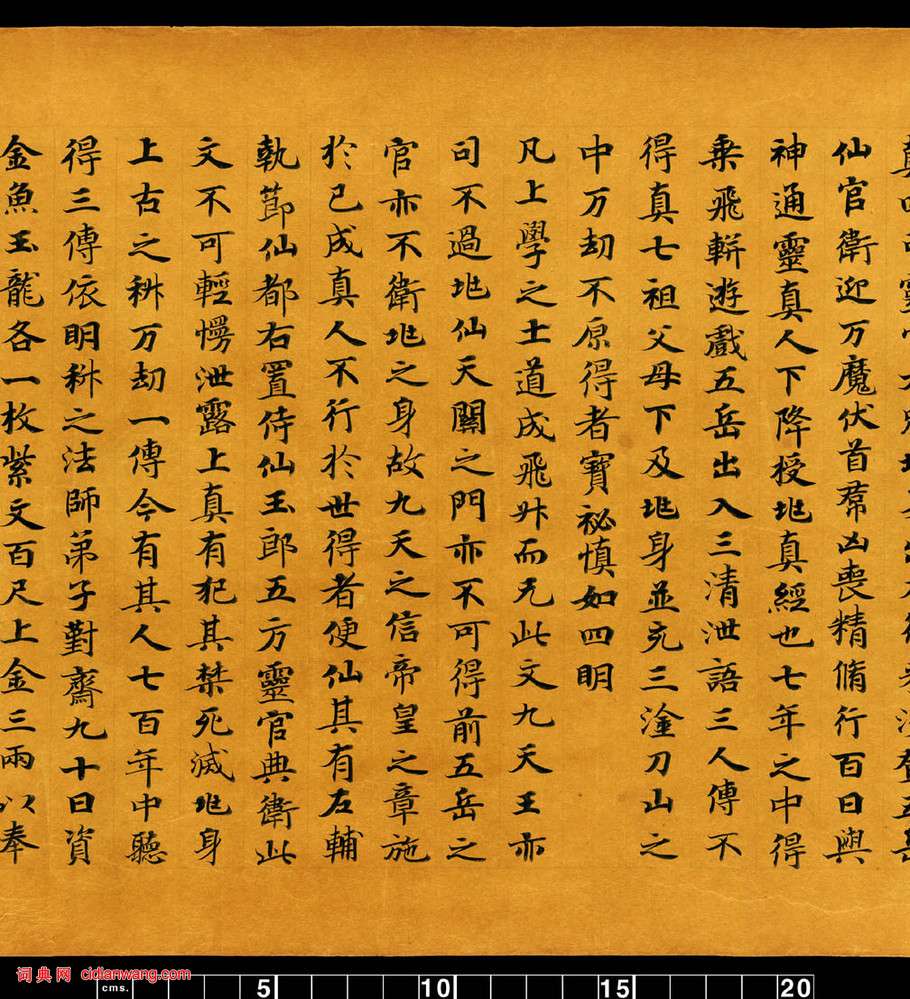 仙官衛迎万魔伏首羣凶喪精脩行百日與
神通靈真人下降授兆真經也七年之中得
乗飛軿遊戲五岳出入三清泄語三人傳不
得真七祖父母下及兆身並充三塗刀山之
中万劫不原得者寶祕慎如四明
凡上學之士道成飛升而无此文九天王亦
司不過兆仙天關之門亦不可得前五岳之
官亦不衛兆之身故九天之信帝皇之章施
於已成真人不行於世得者便仙其有左輔
執節仙都右置侍仙玉郎五方靈官典衛此
文不可輕慢泄露上真有犯其禁死滅兆身
上古之科万劫一傳今有其人七百年中聽
得三傳依明科之法師弟子對齋九十日資
金魚玉龍各一枚紫文百尺上金三兩以奉
词典网 cidianwang.com
cms. 5 10 15 20